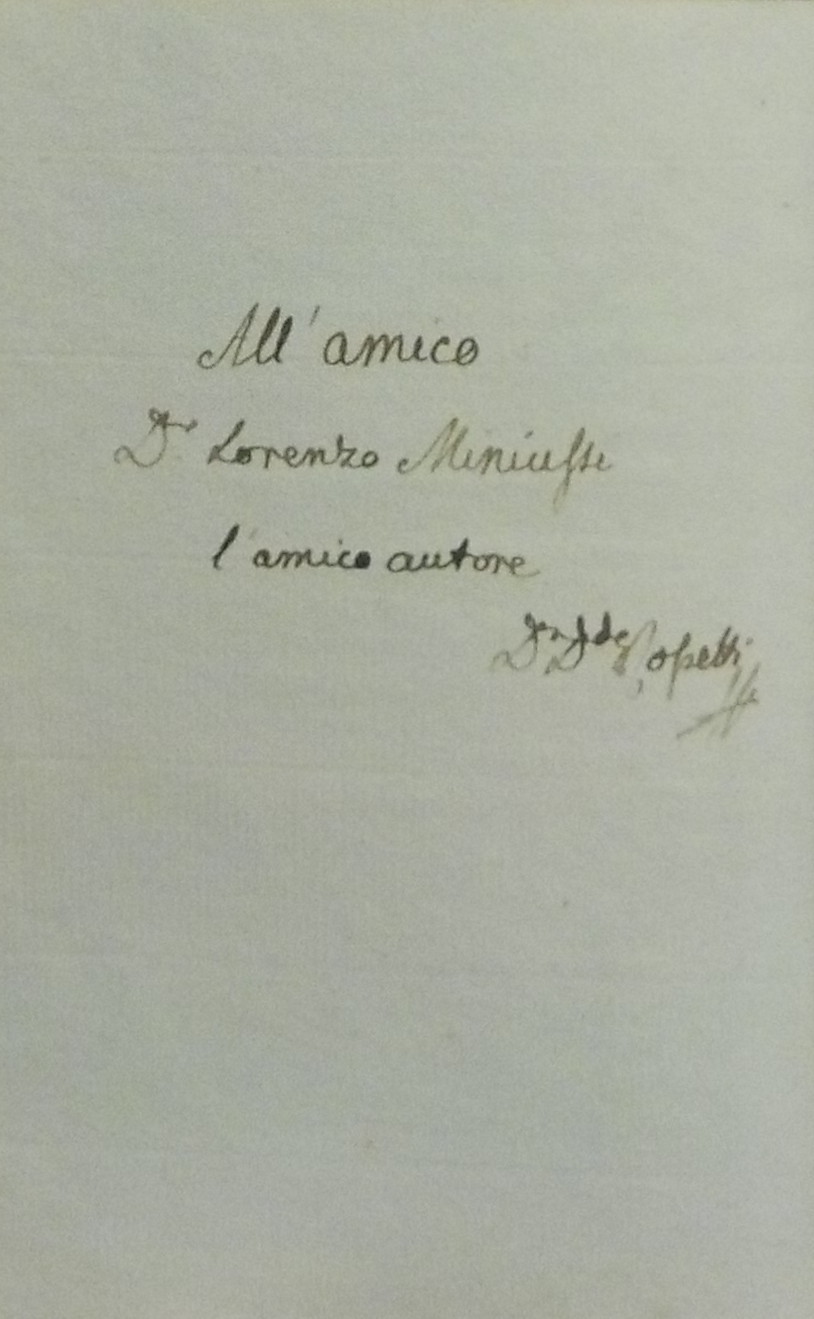 All'amico
Dr Lorenzo Miniussi
l'amico autore
Dr D de Rossetti